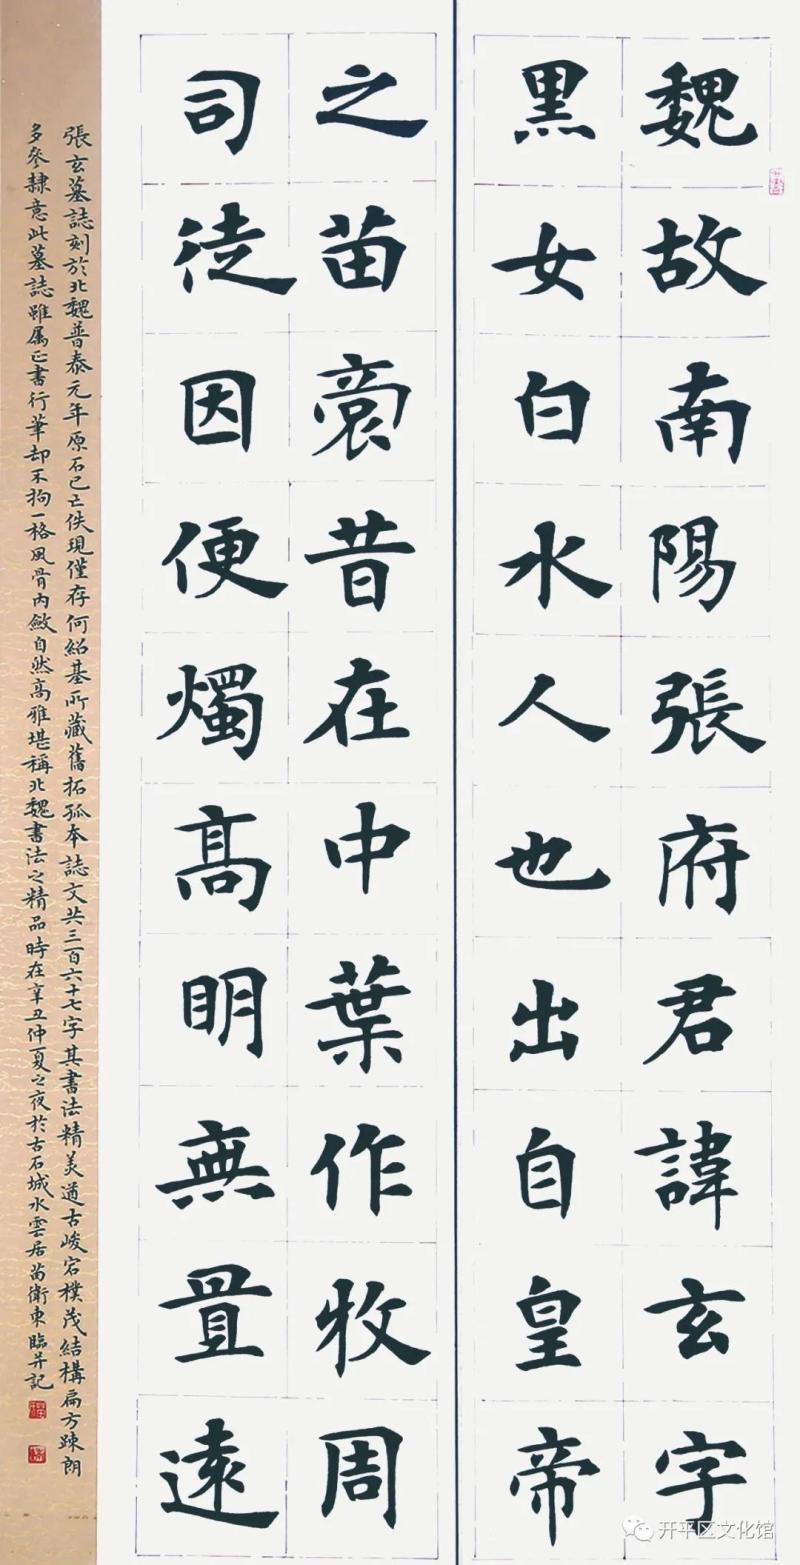 魏故南陽張府君諱玄字
黑女白水人也出自皇帝
之苗裔昔在中葉作牧周
司徒因便燭高明無置遠
張玄墓誌刻於北魏普泰元年原石已亡佚現僅存何紹基所藏舊拓孤本誌文共三百六十七字其書法精美遒古峻宕樸茂結構扁方疎朗
多參隸意此墓誌雖屬正書行筆却不拘一格風骨内斂自然高雅堪稱北魏書法之精品時在辛丑仲夏之夜於古石城水雲居苗衛東臨并記
开平区文化馆